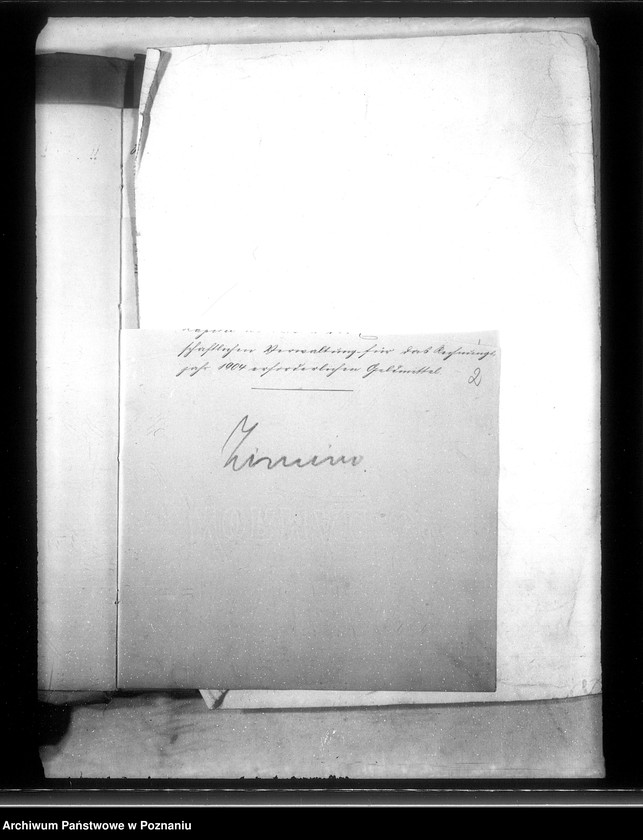 schaftlichen Verwaltung für das Rechnungs-
jahr 1904 erforderlichen Geldmittel.
2
Zimin
Archiwum Państwowe w Poznaniu